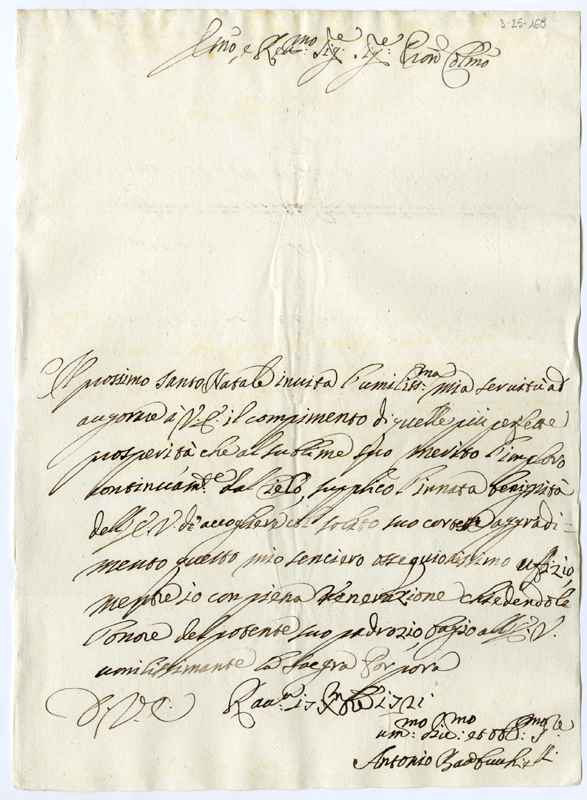 3-25-168
Emo, e Reumo Sigre: Sigre: Pron Colmo
Il prossimo Santo Natale inuita l'umiliss:ma mia seruitù ad
augorare à V.E. il compimento di quelle più perfette
prosperità che al sublime suo merito l'imploro
continuam:te dal Cielo, supplico l'innata benignità
dell'E.V. d'accogliere col solito suo cortese aggradi=
mento questo mio sinciero ossequiosissimo uffizio,
mentre io con piena Venerazione chiedendole
l'onore del potente suo padrozio, bagio all'E.V.
umilissimante la Sacra Porpora
D. V. E. Rau:a 17 Xbre 1721
um:mo diu:mo et obb: Sre
Antonio